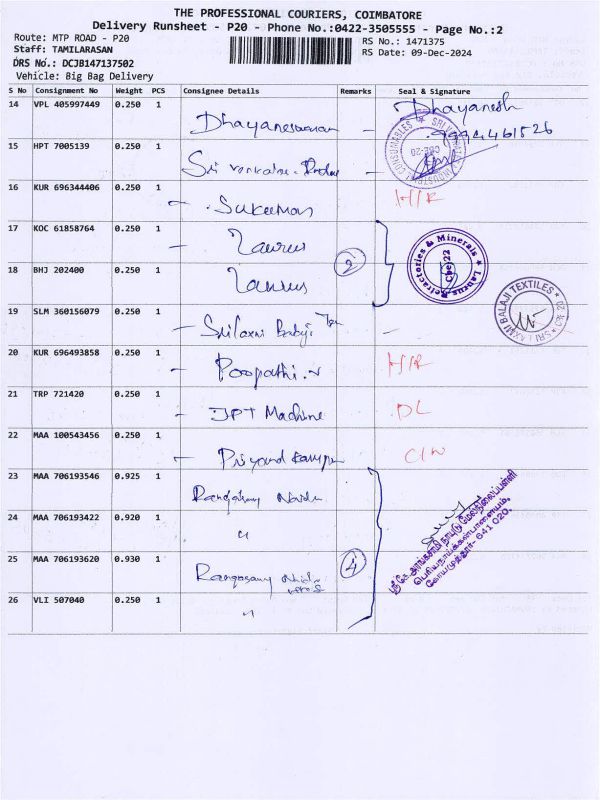 THE PROFESSIONAL COURIERS, COIMBATORE
Delivery Runsheet - P20 - Phone No.:0422-3505555 - Page No.:2
Route: MTP ROAD - P20
RS No.: 1471375
Staff: TAMILARASAN
RS Date: 09-Dec-2024
DRS No.: DCJB147137502
Vehicle: Big Bag Delivery
S No Consignment No Weight PCS Consignee Details Remarks Seal & Signature
14 VPL 405997449 0.250 1 Dhayaneswaran - Dhayanesh
15 HPT 7005139 0.250 1 Sri
16 KUR 696344406 0.250 1 - Sukumar H/R
17 KOC 61858764 0.250 1 - Laurus
2
Refractories & Minerals * Laurus
Cbe-22
18 BHJ 202400 0.250 1 Laurus
19 SLM 360156079 0.250 1 - Srilaxmi Balaji Tex -
* SRI LAXMI BALAJI TEXTILES *
20 KUR 696493858 0.250 1 - Poopathi.v H/R
21 TRP 721420 0.250 1 - JPT Machine DL
22 MAA 100543456 0.250 1 -
23 MAA 706193546 0.925 1 Rangasamy Naidu
24 MAA 706193422 0.920 1 "
4
25 MAA 706193620 0.930 1 Rangasamy
26 VLI 507040 0.250 1 "
கோயமுத்தூர்- 641 020.